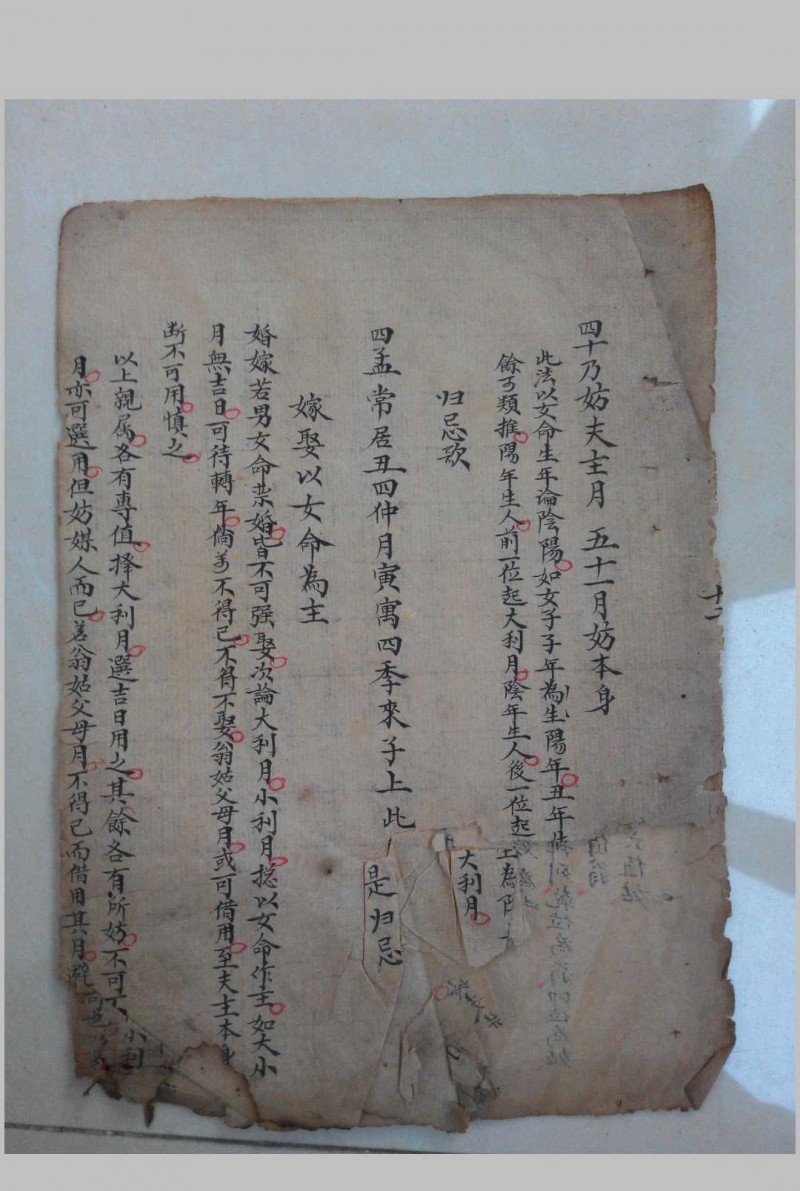 四十乃妨夫主月 五十一月妨本身
此法以女命生年論陰陽如女子子年為生陽年丑年
餘可類推陽年生人前一位起大利月陰年生人後一位起
大利月
归忌歌
四孟常居丑四仲月寅寓四季來子上此是归忌
嫁娶以女命為主
婚嫁若男女命禁婚皆不可强娶次論大利月小利月捴以女命作主如大小
月無吉日可待轉年倘万不得已不得不娶翁姑父母月或可借用至夫主本身
断不可用慎之
以上親属各有專值擇大利月選吉日用之其餘各有所妨不可 小利
月亦可選用但妨媒人而已若翁姑父母月不得已而借用其月
十一